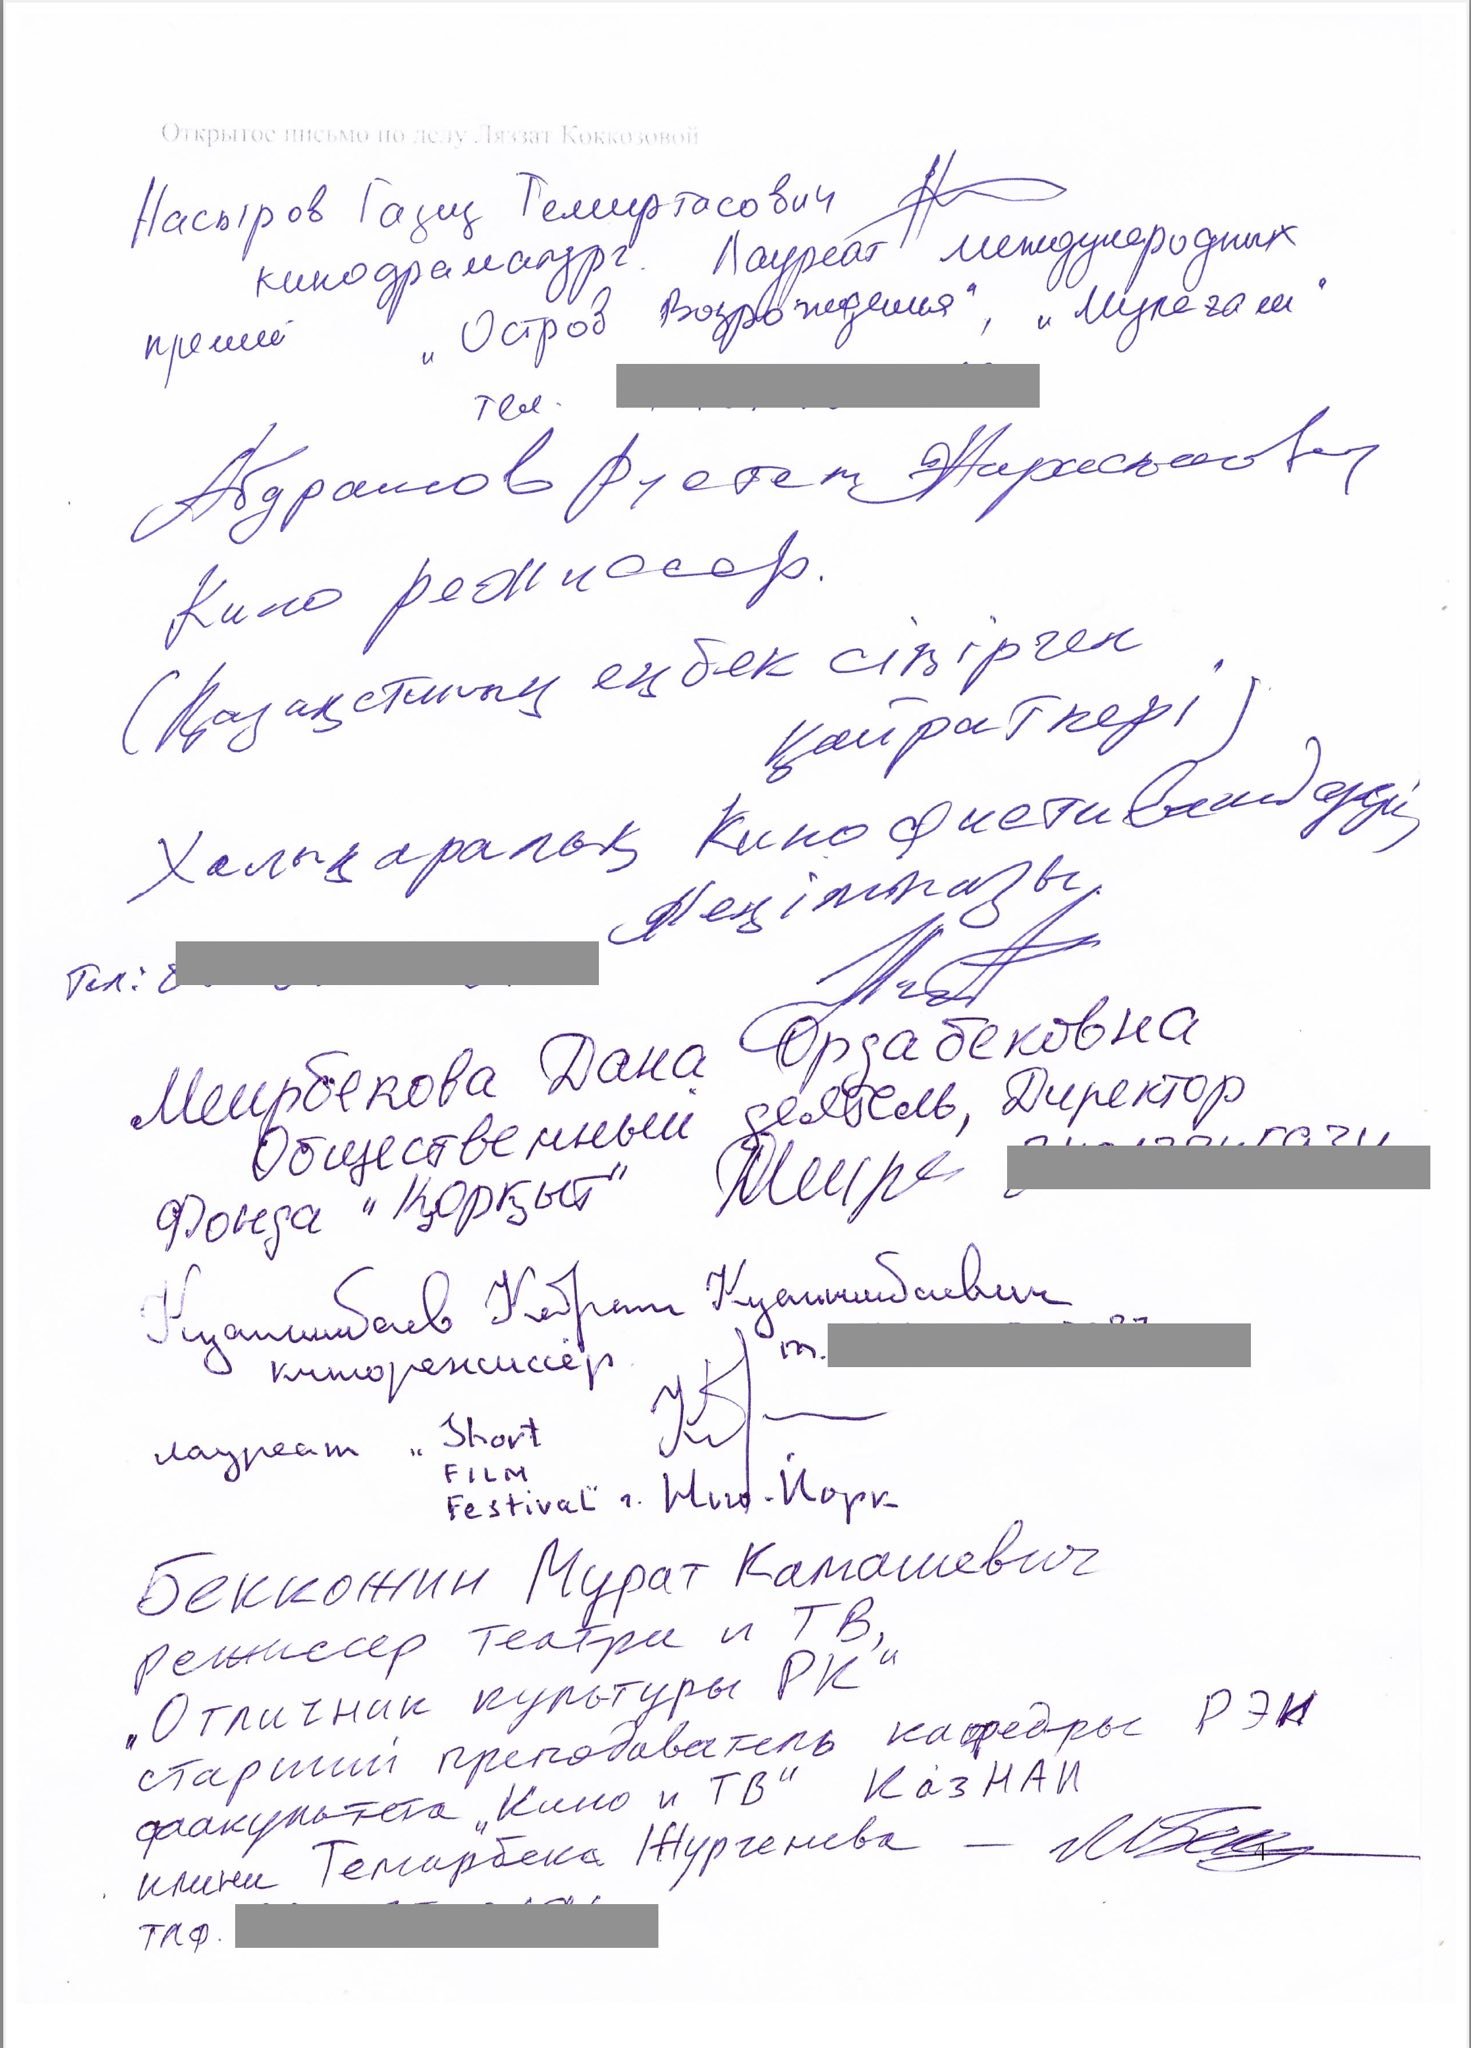 Открытое письмо по делу Ляззат Коккозовой
Насыров Газиз Темиртасович
кинодраматург. Лауреат международных
премий „Остров Возрождения",
тел.
Абдрашов Рустем
Кино режиссер.
(Қазақстанның еңбек сіңірген
қайраткері)
Халықаралық Кинофестивальдардың
жеңімпазы.
Тел: 8
Меирбекова Дана Орзабековна
Общественный деятель, Директор
Фонда „Қорқыт"
Куанышбаев Куанышбаевич
кинорежиссёр т.
лауреат „Short
FILM
Festival" г. Нью-Йорк
Беккожин Мурат Камашевич
режиссер театра и ТВ,
„Отличник культуры РК"
старший преподаватель кафедры РЭК
факультета „Кино и ТВ" КазНАИ
имени Темирбека Жургенева —
тлф.